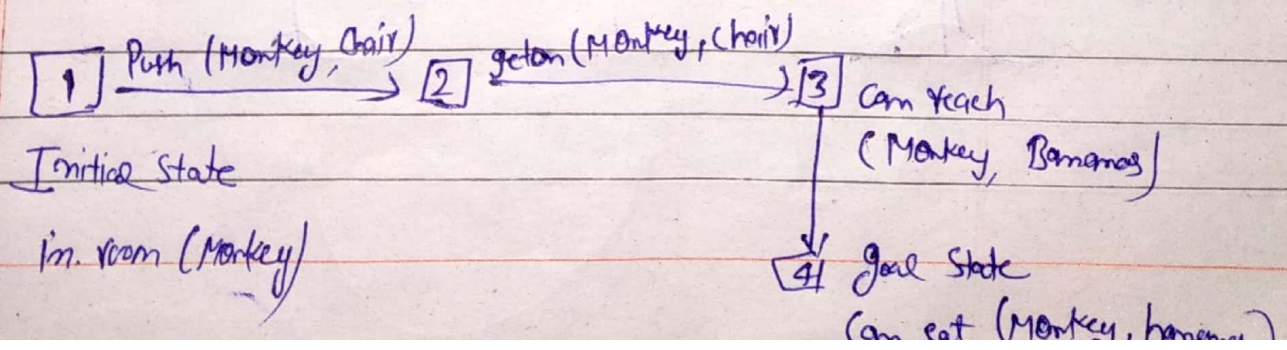 1 Push (Monkey, Chair) 2 geton (Monkey, Chair) 3 Can reach
(Monkey, Bananas)
Initial State
in. room (Monkey)
4 goal State
Can eat (Monkey, banana)